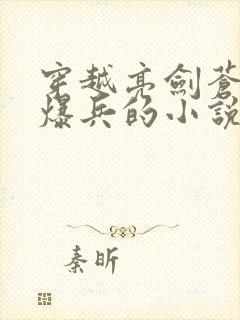 穿越亮劍蒼
爆兵的小說
秦昕